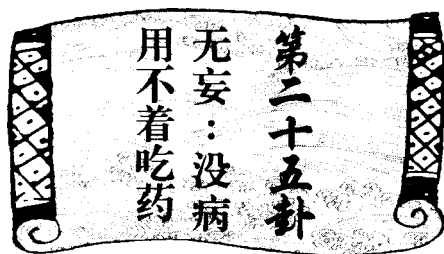 第二十五卦
无妄：没病
用不着吃药